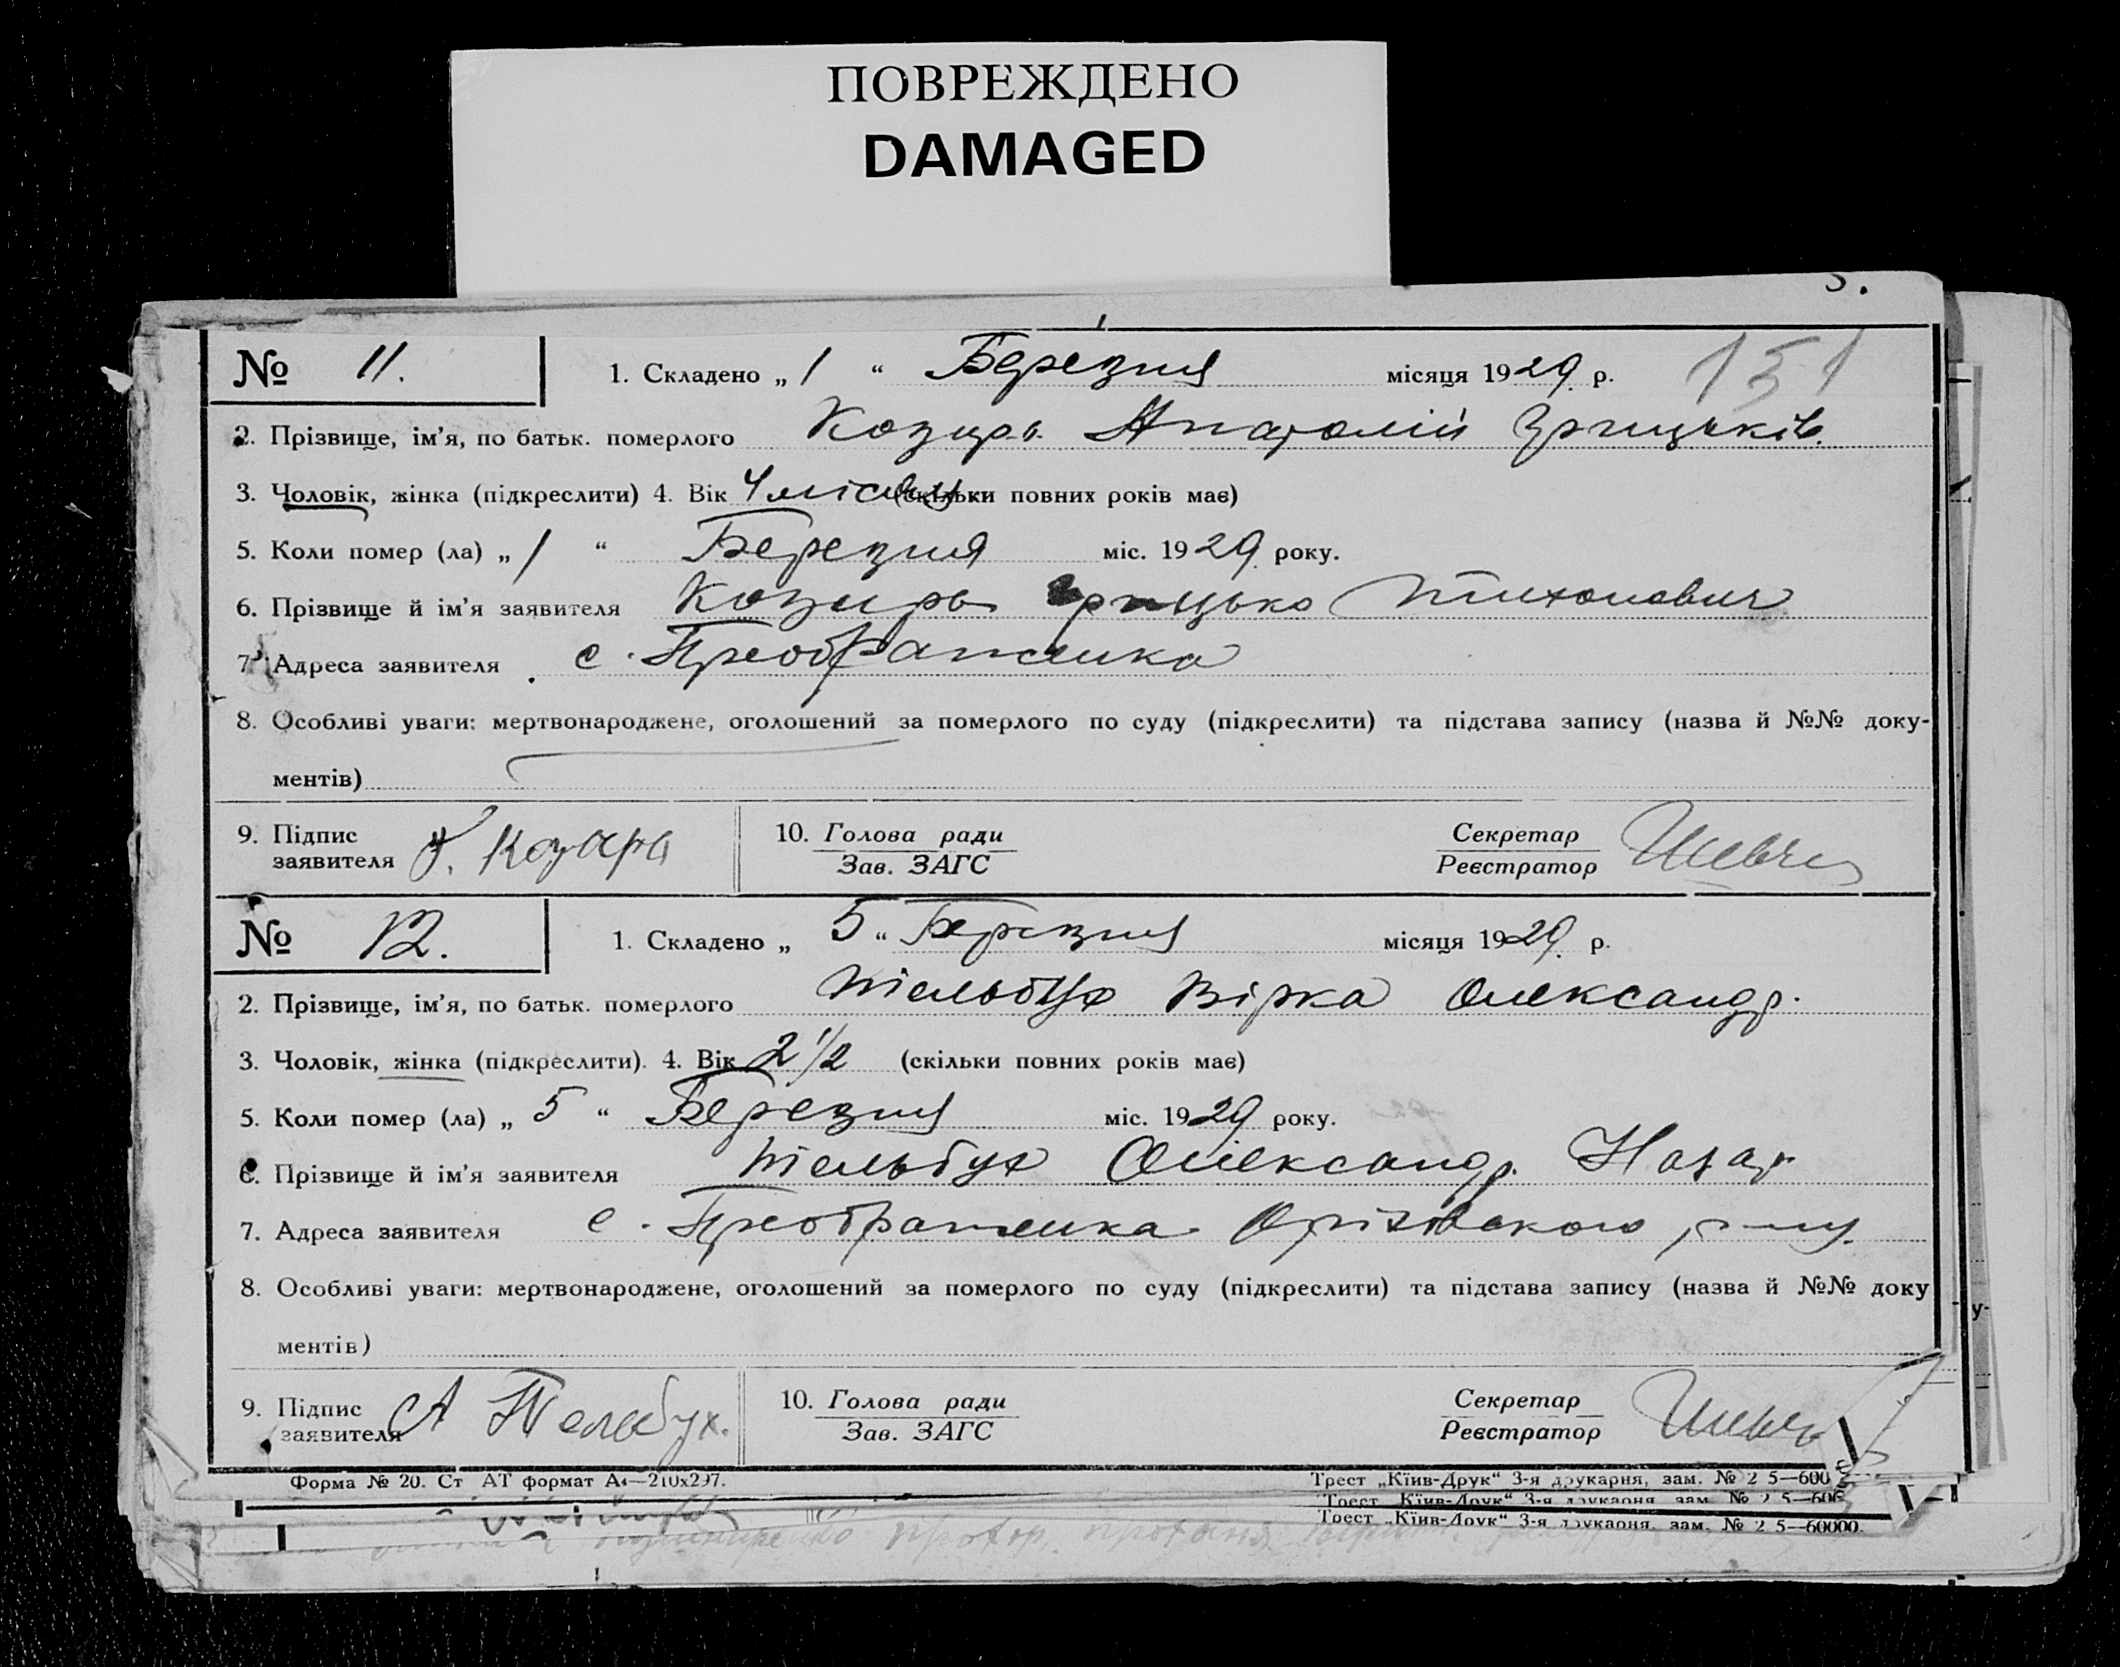 ПОВРЕЖДЕНО
DAMAGED
№ 11. 1. Складено „ 1 “ Березня місяця 1929 р. 151
2. Прізвище, ім’я, по батьк. померлого Козирь Анатолій Грицьків.
3. Чоловік, жінка (підкреслити) 4. Вік 4 місяц (скільки повних років має)
5. Коли помер (ла) „ 1 “ Березня міс. 1929 року.
6. Прізвище й ім’я заявителя Козирь Грицько Тихонович
7. Адреса заявителя с. Преображенка
8. Особливі уваги: мертвонароджене, оголошений за померлого по суду (підкреслити) та підстава запису (назва й №№ доку-
ментів)
9. Підпис заявителя Г. Козарь 10. Голова ради Зав. ЗАГС Секретар Реєстратор
№ 12. 1. Складено „ 5 “ Березня місяця 1929 р.
2. Прізвище, ім’я, по батьк. померлого Тельбух Вірка Олександр.
3. Чоловік, жінка (підкреслити). 4. Вік 2 1/2 (скільки повних років має)
5. Коли помер (ла) „ 5 “ Березня міс. 1929 року.
6. Прізвище й ім’я заявителя Тельбух Олександр. Назар
7. Адреса заявителя с. Преображенка Оріхівського р-ну.
8. Особливі уваги: мертвонароджене, оголошений за померлого по суду (підкреслити) та підстава запису (назва й №№ доку
ментів)
9. Підпис заявителя А Тельбух. 10. Голова ради Зав. ЗАГС Секретар Реєстратор
Форма № 20. Ст АТ формат А4—210х297. Трест „Київ-Друк“ 3-я друкарня, зам. № 2 5—600
Трест „Київ-Друк“ 3-я друкарня, зам. № 2 5—606
Трест „Київ-Друк“ 3-я друкарня, зам. № 2 5—60000.